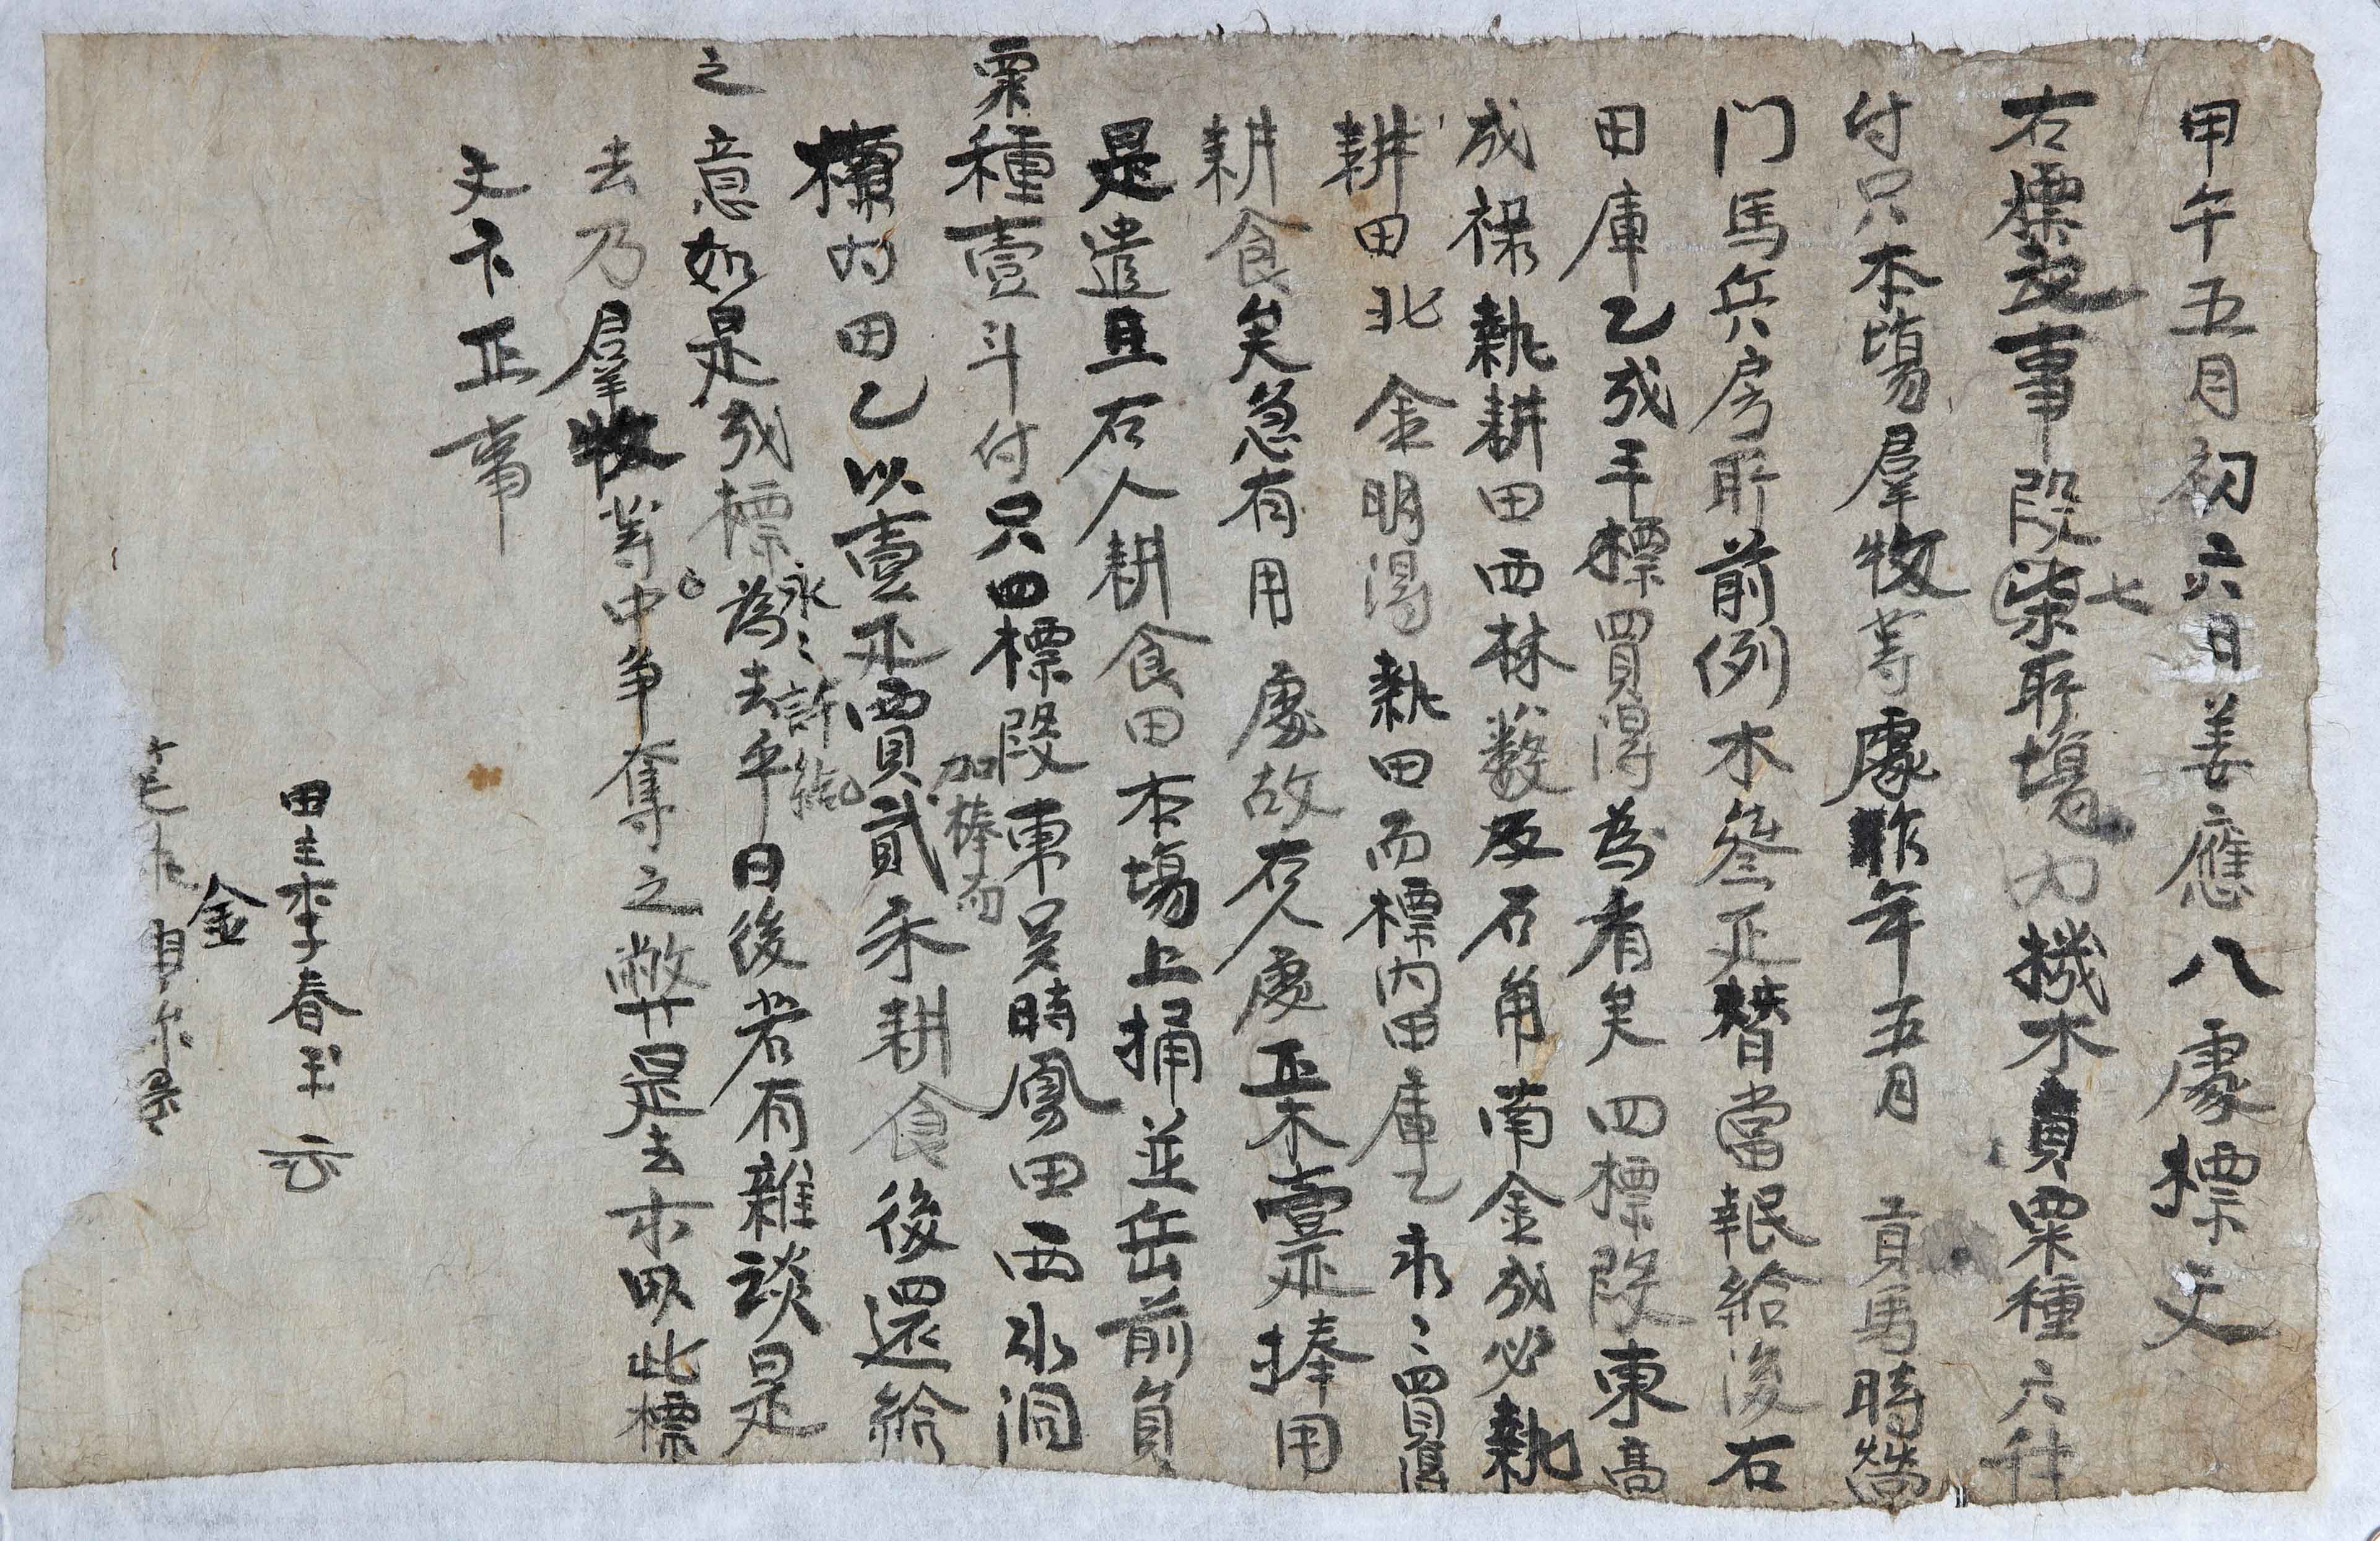 甲午五月初六日姜應八處標文
右標段事段柒七所場內機木員粟種六升
付只本場群牧等處昨年五月 貢馬時營
門馬兵房所前例木叄疋替當報給後右
田庫乙成手標買得為有矣四標段東高
成祿執耕田西林藪及石角南金成必執
耕田北金明得執田而標內田庫乙永〻買得
耕食矣急有用處故右人處正木壹疋捧用
是遣且右人耕食田本場上捅並岳前負
粟種壹斗付只四標段東吳時鳳田西水洞
標內田乙以壹疋價貳禾耕食後還給
加捧而
之意如是成標為去乎日後若有雜談是
永〻許給
去乃群牧等中爭奪之弊是去木以此標
文卞正事
田主李春玉
金